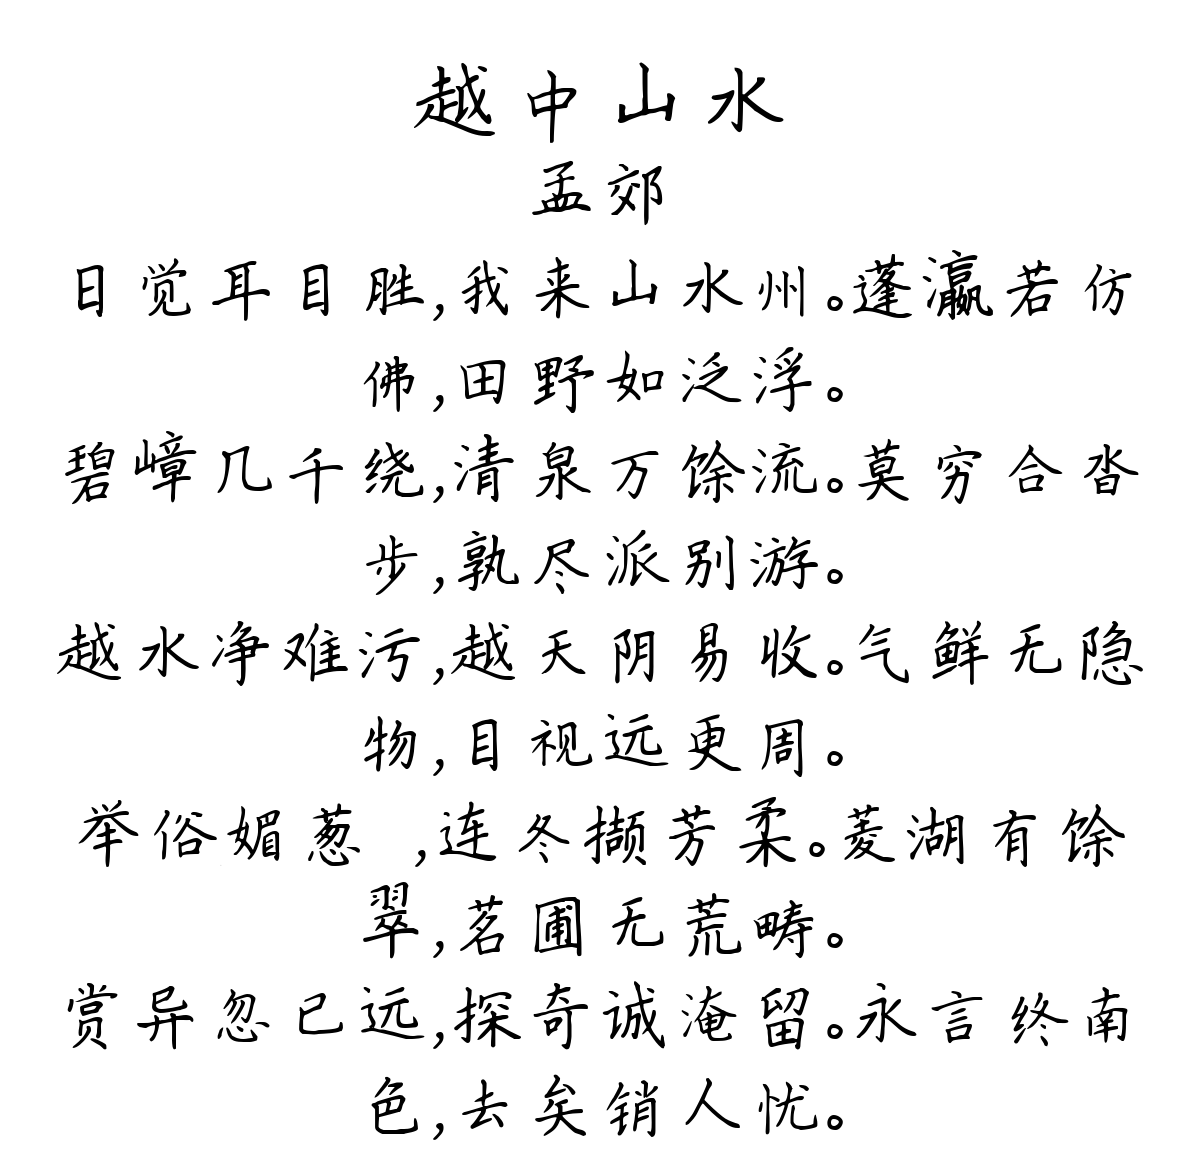 越中山水
孟郊
日觉耳目胜,我来山水州。蓬瀛若仿
佛,田野如泛浮。
碧嶂几千绕,清泉万馀流。莫穷合沓
步,孰尽派别游。
越水净难污,越天阴易收。气鲜无隐
物,目视远更周。
举俗媚葱 ,连冬撷芳柔。菱湖有馀
翠,茗圃无荒畴。
赏异忽已远,探奇诚淹留。永言终南
色,去矣销人忧。